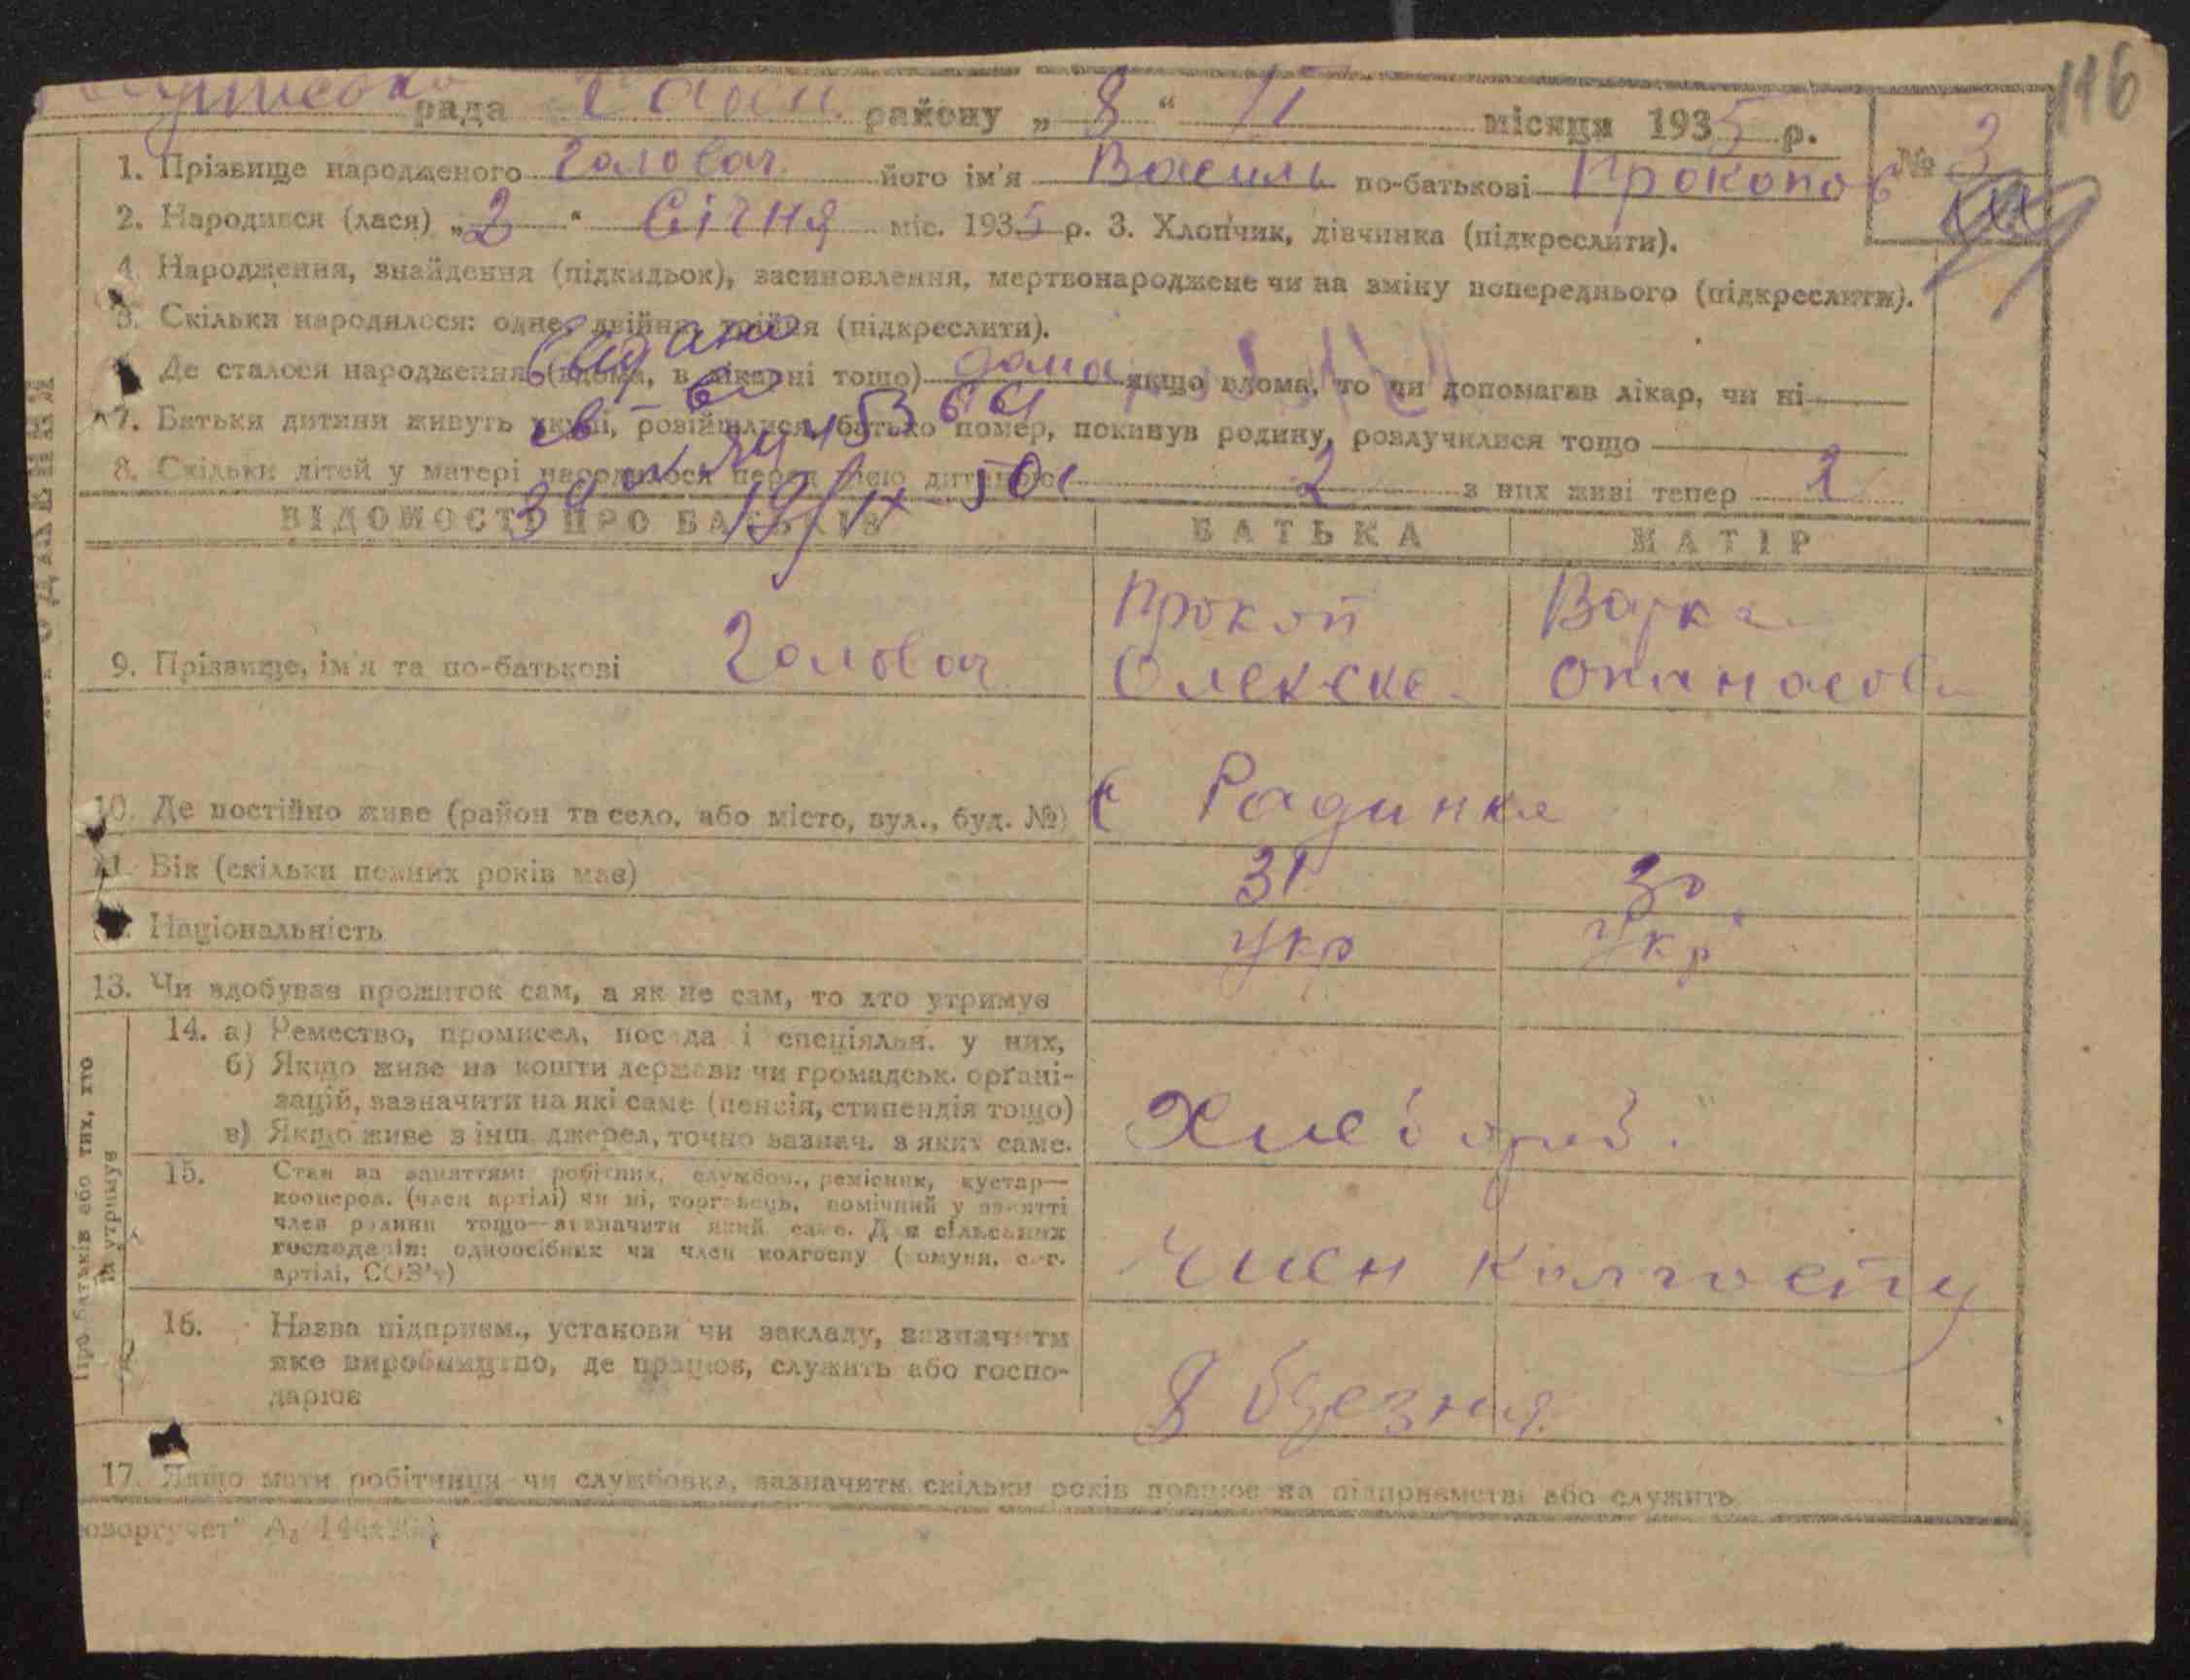 116
рада район. району „ 8 “ II місяця 1935 р.
№ 3
1. Прізвище народженого Головач його ім'я Василь по-батькові Прокопов
2. Народився (лася) „2“ Січня міс. 1935 р. 3. Хлопчик, дівчинка (підкреслити).
4. Народження, знайдення (підкидьок), засиновлення, мертвонароджене чи на зміну попереднього (підкреслити).
5. Скільки народилося: одне, двійня, трійня (підкреслити).
Де сталося народження (вдома, в лікарні тощо) дома якщо вдома, то чи допомагав лікар, чи ні
7. Батьки дитини живуть вкупі, розійшлися, батько помер, покинув родину, розлучилися тощо
8. Скільки дітей у матері народилося перед цією дитиною 2 з них живі тепер 2
Видано
св-во
ВІДОМОСТІ ПРО БАТЬКІВ БАТЬКА МАТІР
Прокоп Варка
9. Прізвище, ім'я та по-батькові Головач Олексієв Опанасов
10. Де постійно живе (район та село, або місто, вул., буд. №) с Радинка
11. Вік (скільки повних років має) 31 30
Національність Укр Укр
13. Чи здобуває прожиток сам, а як не сам, то хто утримує
Про батьків або тих, хто їх утримує
14. а) Ремество, промисел, посада і спеціяльн. у них,
б) Якщо живе на кошти держави чи громадськ. органі-
зацій, зазначити на які саме (пенсія, стипендія тощо)
в) Якщо живе з інш. джерел, точно зазнач. з яких саме.
Хлібороб.
15. Стан за заняттям: робітник, службов., ремісник, кустар—
кооперов. (член артілі) чи ні, торговець, помічний у занятті
член родини тощо—зазначити який саме. Для сільських
господарів: одноосібник чи член колгоспу (комуни, с.-г.
артілі, СОЗ'у)
Член колгоспу
16. Назва підприєм., установи чи закладу, зазначити
яке виробництво, де працює, служить або госпо-
дарює
8 березня.
17. Якщо мати робітниця чи службовка, зазначити скільки років працює на підприємстві або служить